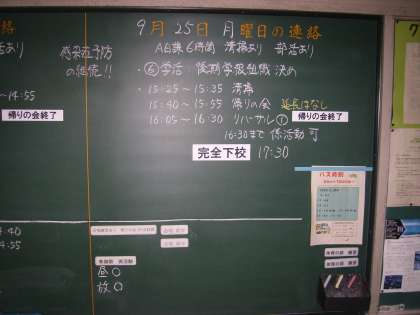 絡
9月25日 月曜日の連絡
活あり
感染症予防
の推進!!
AB乗6時間 清掃あり 部活あり
・⑥学活:後期学級組織決め
・15:25〜15:35 清掃
15:40〜15:55 帰りの会 延長はなし
〜14:55
帰りの会終了
帰りの会終了
16:05〜16:30 リハーサル①
16:30まで係活動可
完全下校 17:30
バス時刻
4:40
4:55
昼○
放○